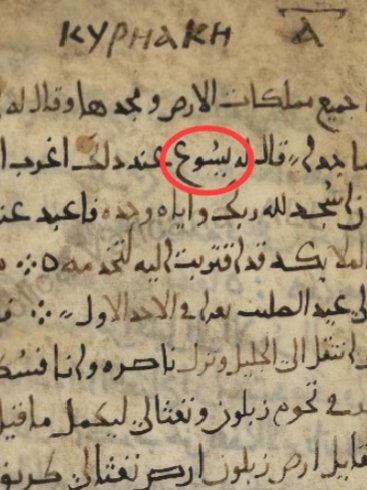 ΚΥΡΗΑΚΗ Α
جميع مملكات الارض ومجدها وقال له
قال له يسوع عند ذلك اغرب
اسجد لله ربك واياه وحده فاعبد
الملايكه قد اقتربت اليه لتخدمه
عيد الصليب يقرا في الاحد الاول
انتقل الى الجليل وترك ناصره واتا فسكن
في تخوم زبلون ونفتالي ليكمل ما قيل
ارض زبلون ارض نفتالي طريق